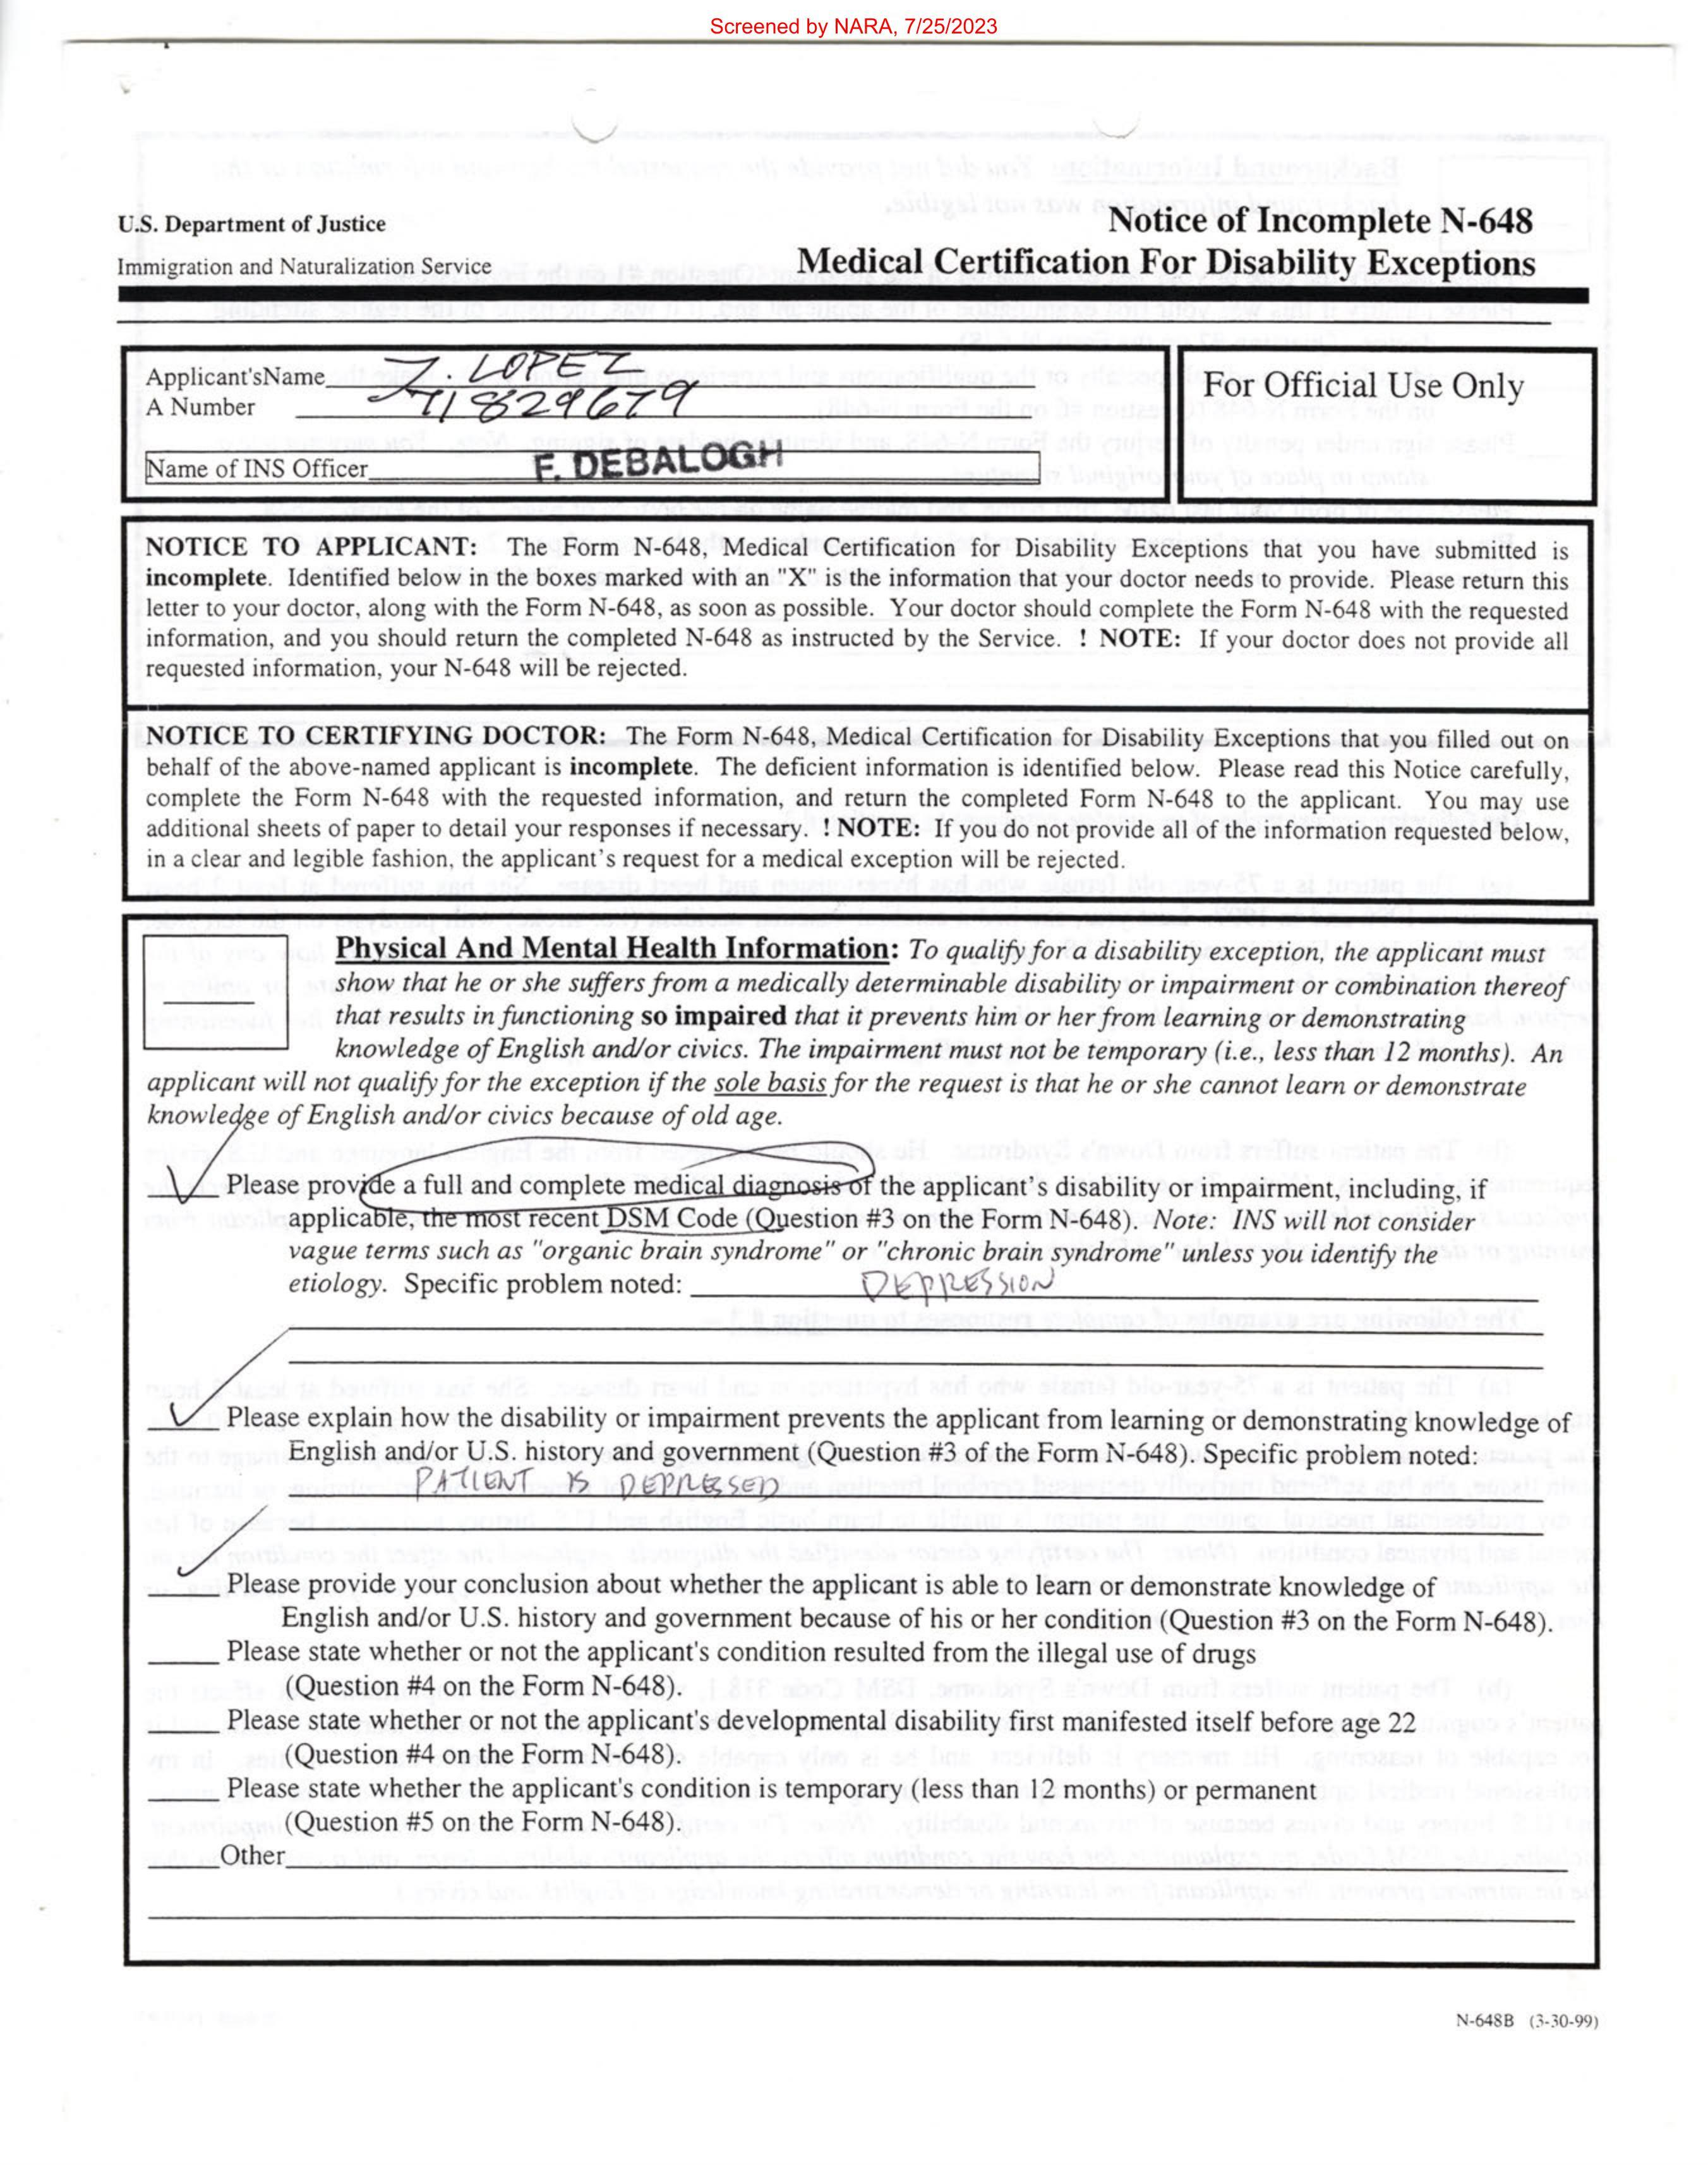 Screened by NARA, 7/25/2023
U.S. Department of Justice
Immigration and Naturalization Service
Notice of Incomplete N-648
Medical Certification For Disability Exceptions
Applicant'sName Z. LOPEZ
A Number 71829679
Name of INS Officer F. DEBALOGH
For Official Use Only
NOTICE TO APPLICANT: The Form N-648, Medical Certification for Disability Exceptions that you have submitted is
incomplete. Identified below in the boxes marked with an "X" is the information that your doctor needs to provide. Please return this
letter to your doctor, along with the Form N-648, as soon as possible. Your doctor should complete the Form N-648 with the requested
information, and you should return the completed N-648 as instructed by the Service. ! NOTE: If your doctor does not provide all
requested information, your N-648 will be rejected.
NOTICE TO CERTIFYING DOCTOR: The Form N-648, Medical Certification for Disability Exceptions that you filled out on
behalf of the above-named applicant is incomplete. The deficient information is identified below. Please read this Notice carefully,
complete the Form N-648 with the requested information, and return the completed Form N-648 to the applicant. You may use
additional sheets of paper to detail your responses if necessary. ! NOTE: If you do not provide all of the information requested below,
in a clear and legible fashion, the applicant's request for a medical exception will be rejected.
Physical And Mental Health Information: To qualify for a disability exception, the applicant must
show that he or she suffers from a medically determinable disability or impairment or combination thereof
that results in functioning so impaired that it prevents him or her from learning or demonstrating
knowledge of English and/or civics. The impairment must not be temporary (i.e., less than 12 months). An
applicant will not qualify for the exception if the sole basis for the request is that he or she cannot learn or demonstrate
knowledge of English and/or civics because of old age.
Please provide a full and complete medical diagnosis of the applicant's disability or impairment, including, if
applicable, the most recent DSM Code (Question #3 on the Form N-648). Note: INS will not consider
vague terms such as "organic brain syndrome" or "chronic brain syndrome" unless you identify the
etiology. Specific problem noted: DEPRESSION
Please explain how the disability or impairment prevents the applicant from learning or demonstrating knowledge of
English and/or U.S. history and government (Question #3 of the Form N-648). Specific problem noted:
PATIENT IS DEPRESSED
Please provide your conclusion about whether the applicant is able to learn or demonstrate knowledge of
English and/or U.S. history and government because of his or her condition (Question #3 on the Form N-648).
Please state whether or not the applicant's condition resulted from the illegal use of drugs
(Question #4 on the Form N-648).
Please state whether or not the applicant's developmental disability first manifested itself before age 22
(Question #4 on the Form N-648).
Please state whether the applicant's condition is temporary (less than 12 months) or permanent
(Question #5 on the Form N-648).
Other
N-648B (3-30-99)